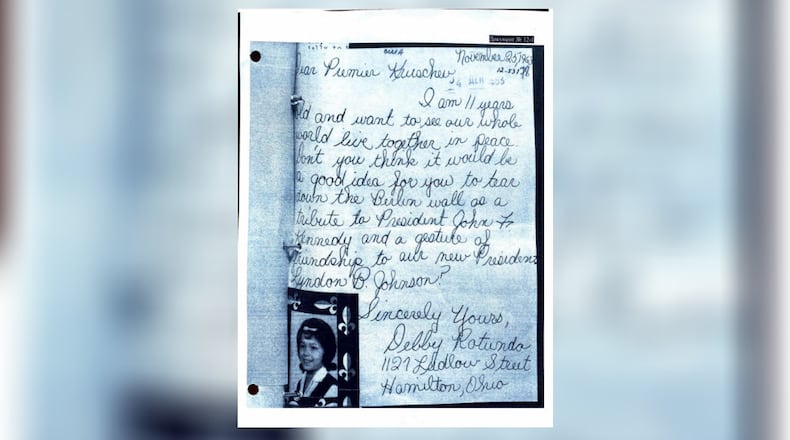 November 25, 1963
Dear Premier Kruschev,
I am 11 years
old and want to see our whole
world live together in peace
Don't you think it would be
a good idea for you to tear
down the Berlin wall as a
tribute to President John F.
Kennedy and a gesture of
friendship to our new President
Lyndon B. Johnson?
Sincerely Yours,
Debby Rotunda
1127 Ludlow Street
Hamilton, Ohio